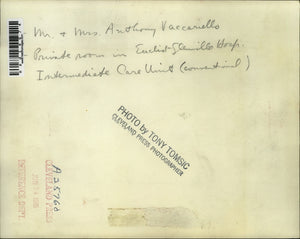 Mr. + Mrs. Anthony Vaccariello
Private room in Euclid-Glenville Hosp.
Intermediate Care Unit (convential)
PHOTO by TONY TOMSIC
CLEVELAND PRESS PHOTOGRAPHER
A25760
CLEVELAND PRESS
REFERENCE DEPT.